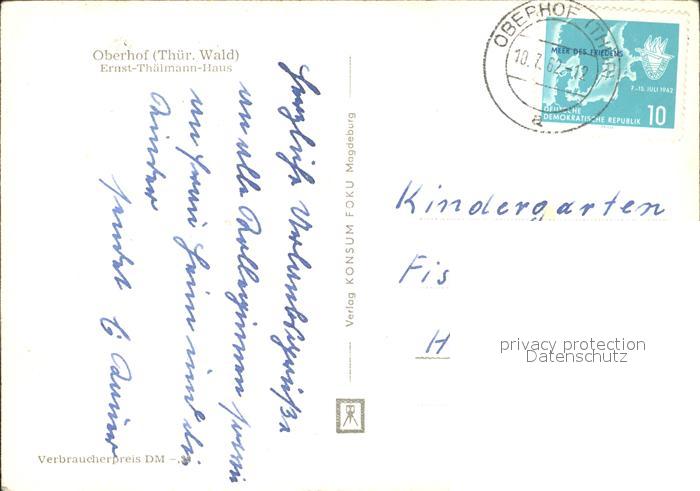 Oberhof (Thür. Wald)
Ernst-Thälmann-Haus
Herzliche Urlaubsgrüße
an alle Kolleginnen sowie
an Frau Heim und die
Kinder
sendet
Verbraucherpreis DM –,
Verlag KONSUM FOKU Magdeburg
OBERHOF (THÜR)
10.7.62-12
a
MEER DES FRIEDENS
7.-15. JULI 1962
DEUTSCHE
DEMOKRATISCHE REPUBLIK
10
Kindergarten
Fis
H
privacy protection
Datenschutz